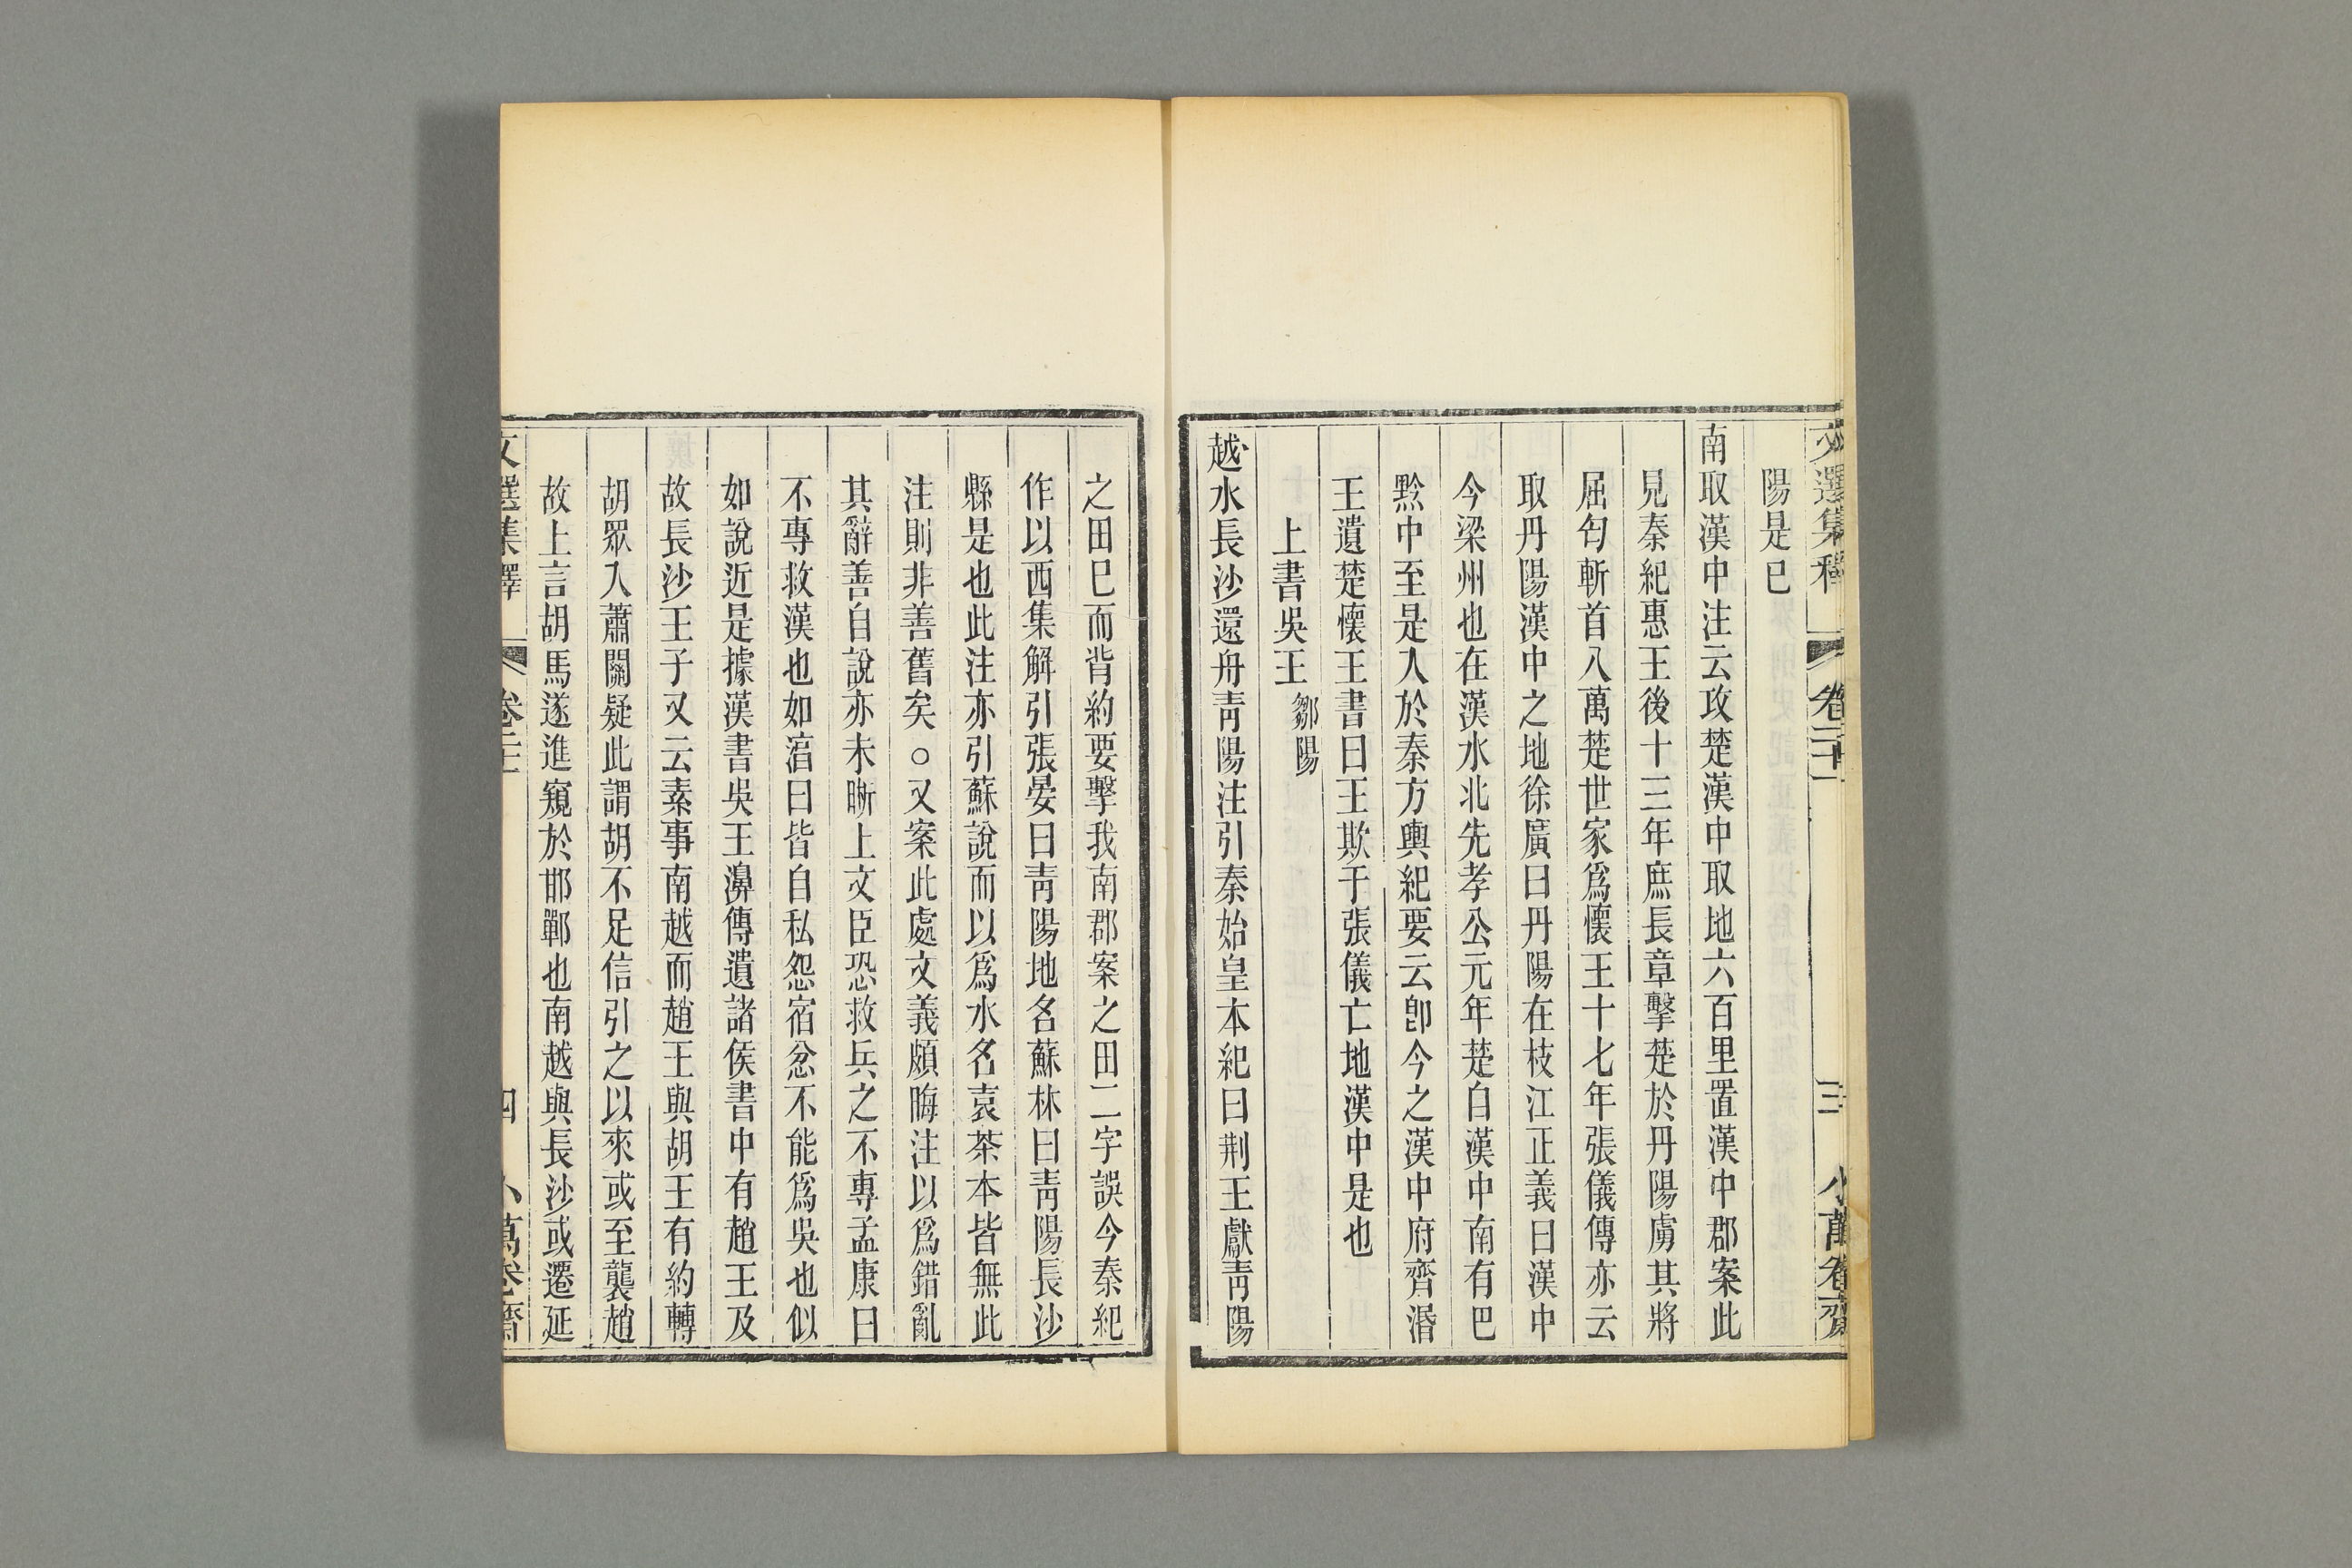 文選集釋 卷二十一 三 小萬卷齋
陽是已
南取漢中注云攻楚漢中取地六百里置漢中郡案此
見秦紀惠王後十三年庶長章擊楚於丹陽虜其將
屈匄斬首八萬楚世家爲懷王十七年張儀傳亦云
取丹陽漢中之地徐廣曰丹陽在枝江正義曰漢中
今梁州也在漢水北先孝公元年楚自漢中南有巴
黔中至是入於秦方輿紀要云卽今之漢中府齊湣
王遺楚懷王書曰王欺于張儀亡地漢中是也
上書吳王 鄒陽
越水長沙還舟靑陽注引秦始皇本紀曰荆王獻靑陽
之田已而背約要擊我南郡案之田二字誤今秦紀
作以西集解引張晏曰靑陽地名蘇林曰靑陽長沙
縣是也此注亦引蘇說而以爲水名袁茶本皆無此
注則非善舊矣○又案此處文義頗晦注以爲錯亂
其辭善自說亦未晰上文臣恐救兵之不專孟康曰
不專救漢也如湻曰皆自私怨宿忿不能爲吳也似
如說近是據漢書吳王濞傳遺諸侯書中有趙王及
故長沙王子又云素事南越而趙王與胡王有約轉
胡眾入蕭關疑此謂胡不足信引之以來或至襲趙
故上言胡馬遂進窺於邯鄲也南越與長沙或遷延
文選集釋 卷二十一 四 小萬卷齋